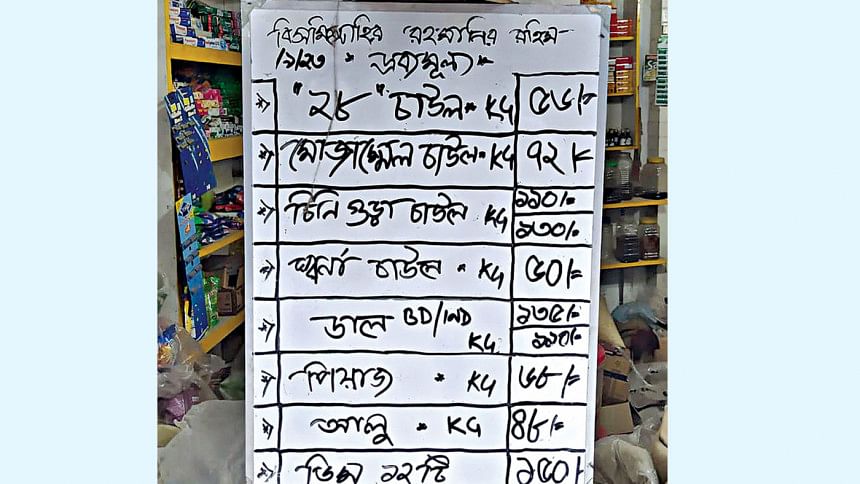 বিসমিল্লাহির রহমানির রহিম
১/৯/২৩ * দ্রব্যমূল্য *
* "২৮" চাউল * KG ৫৬/=
* মোজাম্মেল চাউল * KG ৭২/=
* চিনি গুড়া চাউল KG ১১০/= ১৩০/=
* স্বর্না চাউল * KG ৫০/=
* ডাল BD/IND KG ১৩৫/= ১১০/=
* পিয়াজ * KG ৬৮/=
* আলু * KG ৪৮/=
* ডিম ১২টি ১৫০/=